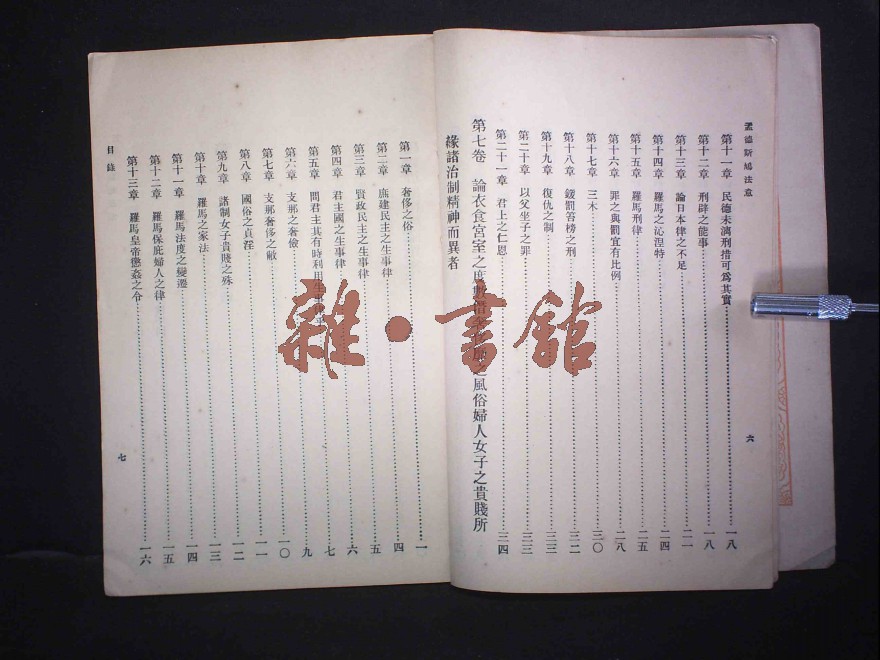 孟德斯鳩法意
第十一章　民德未漓刑措可爲其實 一八
第十二章　刑辟之能事 一八
第十三章　論日本律之不足 二一
第十四章　羅馬之沁涅特 二四
第十五章　羅馬刑律 二五
第十六章　罪之與罰宜有比例 二八
第十七章　三木 三〇
第十八章　鍰罰笞榜之刑 三二
第十九章　復仇之制 三三
第二十章　以父坐子之罪 三三
第二十一章　君上之仁恩 三四
第七卷　論衣食宮室之度數 之風俗婦人女子之貴賤所
緣諸治制精神而異者
六
第一章　奢侈之俗 一
第二章　庶建民主之生事律 四
第三章　賢政民主之生事律 五
第四章　君主國之生事律 六
第五章　問君主其有時利用生事律乎 七
第六章　支那之奢儉 九
第七章　支那奢侈之敝 一〇
第八章　國俗之貞淫 一一
第九章　諸制女子貴賤之殊 一二
第十章　羅馬之家法 一三
第十一章　羅馬法度之變遷 一四
第十二章　羅馬保庇婦人之律 一五
第十三章　羅馬皇帝懲姦之令 一六
目錄
七
雜·書館